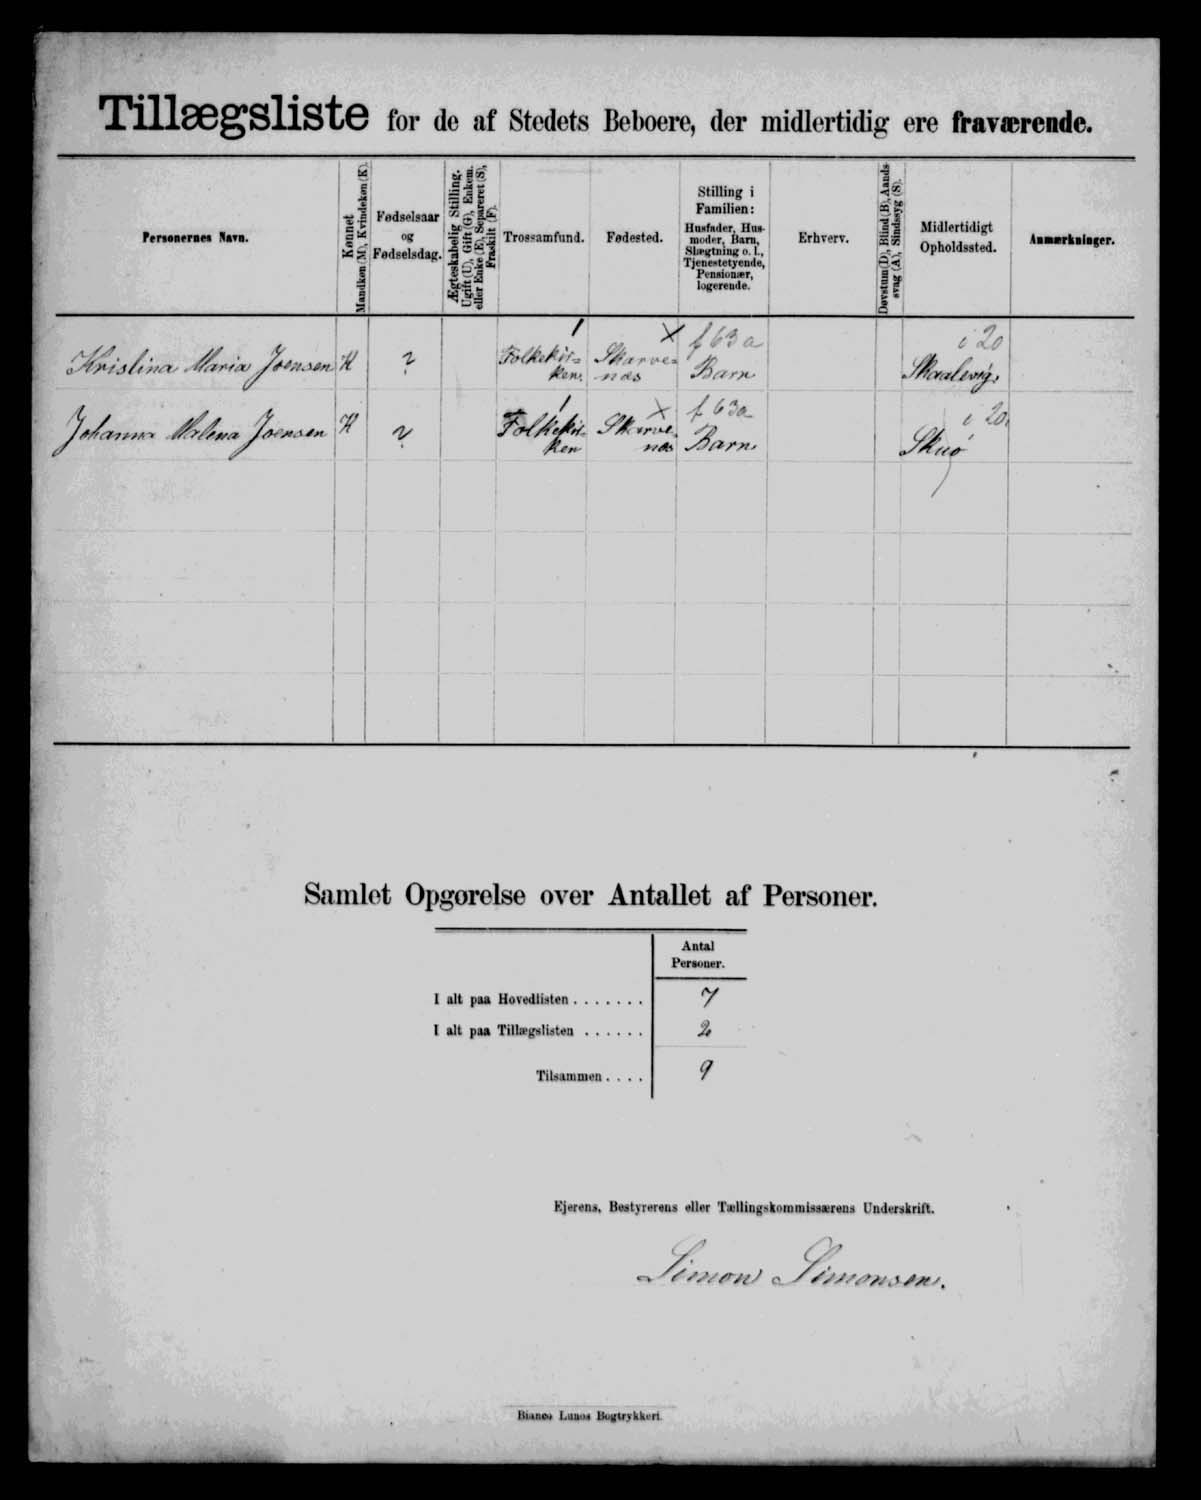 Tillægsliste for de af Stedets Beboere, der midlertidig ere fraværende.
Personernes Navn.
Kønnet
Mandkøn (M), Kvindekøn (K).
Fødselsaar
og
Fødselsdag.
Ægteskabelig Stilling.
Ugift (U), Gift (G), Enkem.
eller Enke (E), Separeret (S),
Fraskilt (F).
Trossamfund.
Fødested.
Stilling i
Familien:
Husfader, Hus-
moder, Barn,
Slægtning o. l.,
Tjenestetyende,
Pensionær,
logerende.
Erhverv.
Døvstum (D), Blind (B), Aands-
svag (A), Sindssyg (S).
Midlertidigt
Opholdssted.
Anmærkninger.
Kristina Maria Joensen K ? Folkekir= Skarve= f 63 a i 20
ken. næs Barn Skaalevig.
Johanna Malena Joensen K ? Folkekir= Skarve= f 63a i 20
ken næs Barn Skuø
Samlet Opgørelse over Antallet af Personer.
Antal
Personer.
I alt paa Hovedlisten . . . . . . . 7
I alt paa Tillægslisten . . . . . . 2
Tilsammen . . . . 9
Ejerens, Bestyrerens eller Tællingskommissærens Underskrift.
Simon Simonsen.
Bianco Lunos Bogtrykkeri.